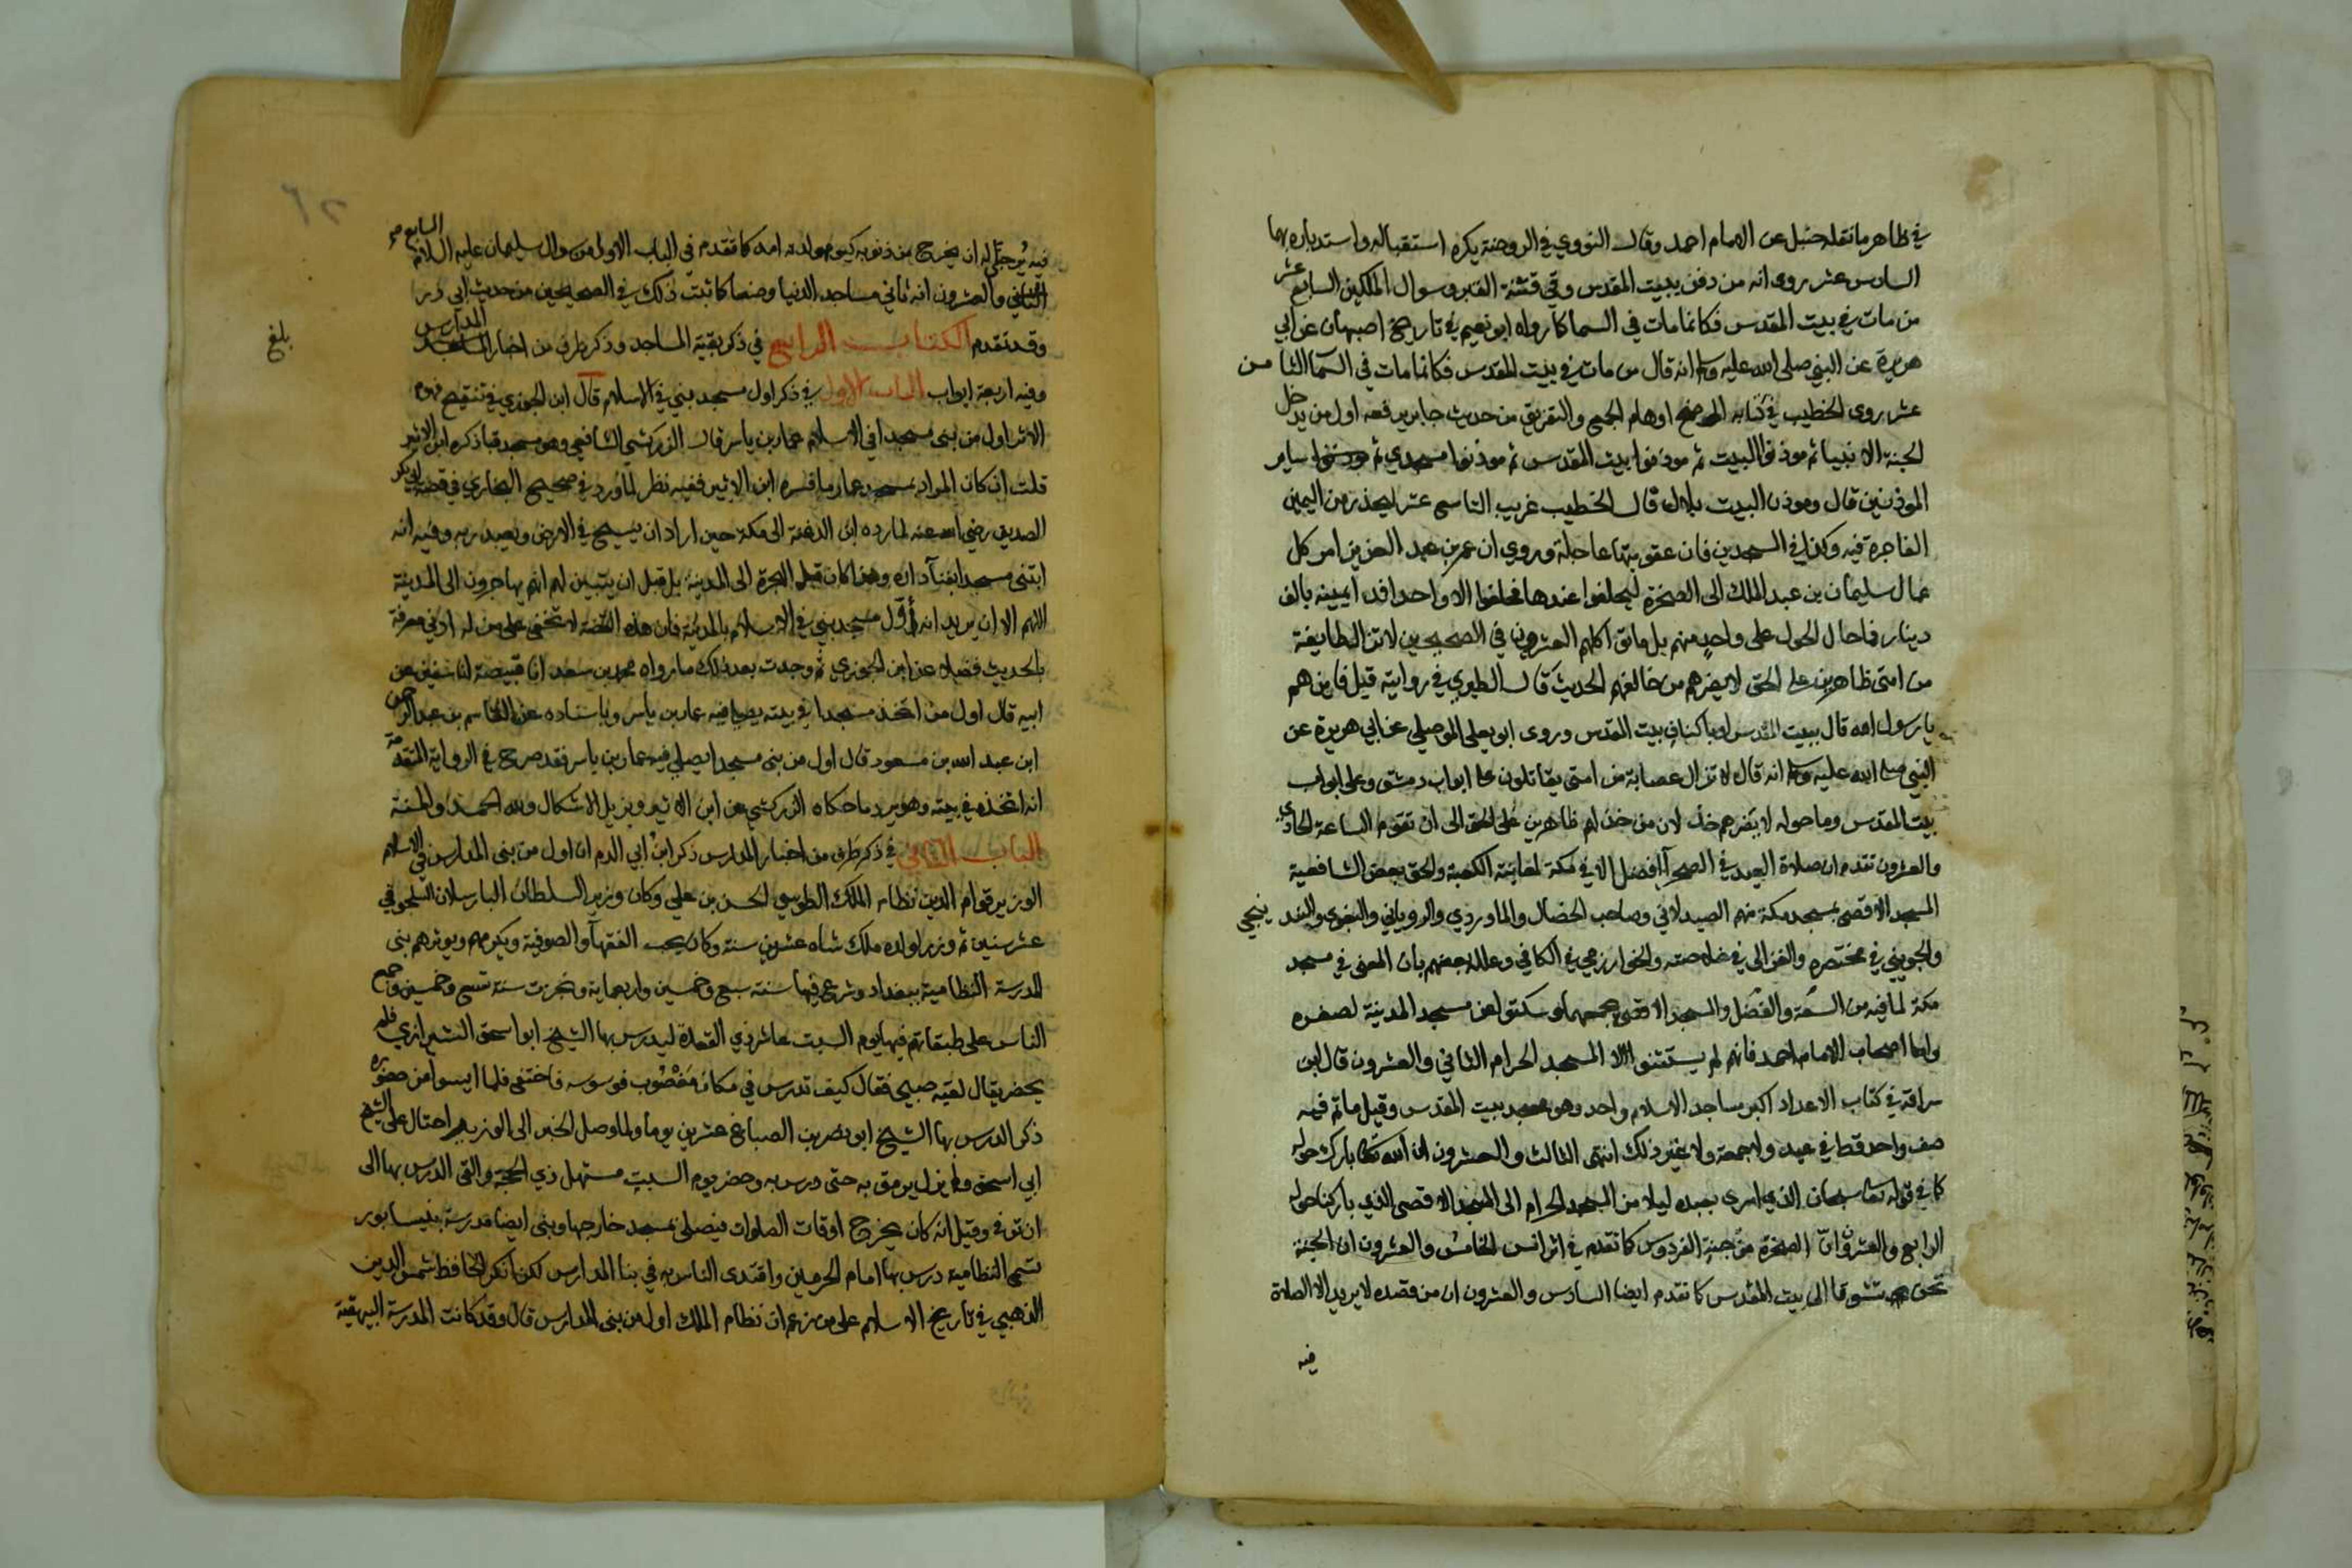 في ظاهر ما نقله حنبل عن الامام احمد وقال النووي في الروضة يكره استقباله واستدباره بهما
السادس عشر روى انه من دفن ببيت المقدس وقي فتنة القبر وسوال الملكين السابع عشر
من مات في بيت المقدس فكانما مات في السما كما رواه ابو نعيم في تاريخ اصبهان عن ابي
هريرة عن النبي صلى الله عليه وسلم انه قال من مات في بيت المقدس فكانما مات في السمآ الثامن
عشر روى الخطيب في كتابه الموضح اوهام الجمع والتفريق من حديث جابر يرفعه اول من يدخل
الجنة الانبيا ثم موذنوا البيت ثم موذنوا بيت المقدس ثم موذنوا مسجدي ثم ساير
الموذنين قال وموذن البيت بلال قال الخطيب غريب التاسع عشر ليحذر من اليمين
الفاجرة فيه وكذا في المسجدين فان عقوبتها عاجلة وروي ان عمر بن عبد العزيز امر كل
عمال سليمان بن عبد الملك الى الصخرة ليحلفوا عندها فحلفوا الا واحد افدا يمينه بالف
دينار فما حال الحول على واحد منهم بل ماتوا كلهم العشرون في الصحيحين لا تزال طايفة
من امتى ظاهرين على الحق لا يضرهم من خالفهم الحديث قال الطبري في رواية قيل فاين هم
يا رسول الله قال ببيت المقدس او باكناف بيت المقدس وروى ابو يعلى الموصلي عن ابي هريرة عن
النبي صلى الله عليه وسلم انه قال لا تزال عصابة من امتى يقاتلون على ابواب دمشق وعلى ابواب
بيت المقدس وما حوله لا يضرهم خذلان من خذلهم ظاهرين على الحق الى ان تقوم الساعة الحادي
والعشرون تقدم ان صلاة العيد في الصحرآ افضل الا في مكة لمعاينة الكعبة والحق بعض الشافعية
المسجد الاقصى بمسجد مكة منهم الصيدلاني وصاحب الخصال والماوردي والروياني والبغوي والبندنيجي
والجويني في مختصره والغزالى في خلاصته والخوارزمي في الكافي وعلله بعضهم بان المعنى في مسجد
مكة لما فيه من السعة والفضل والمسجد الاقصى يجمعهما وسكتوا عن مسجد المدينة لصغره
واما اصحاب الامام احمد فانهم لم يستثنوا الا المسجد الحرام الثاني والعشرون قال ابن
سراقة في كتاب الاعداد اكبر مساجد الاسلام واحد وهو مسجد بيت المقدس وقيل ما تم فيه
صف واحد قط في عيد ولا جمعة ولا غير ذلك انتهى الثالث والعشرون ان الله تعالى بارك حوله
كما في قوله تعالى سبحان الذي اسرى بعبده ليلا من المسجد الحرام الى المسجد الاقصى الذي باركنا حوله
الرابع والعشرون ان الصخرة من جنة الفردوس كما تقدم في اثر انس الخامس والعشرون ان الجنة
تحن تشوقا الى بيت المقدس كما تقدم ايضا السادس والعشرون ان من قصده لا يريد الا الصلاة
فيه
فيه يُرجى له ان يخرج من ذنوبه كيوم ولدته امه كما تقدم في الباب الاول من سوال سليمان عليه السلام السابع
والعشرون انه ثاني مساجد الدنيا وضعا كما ثبت ذلك في الصحيحين من حديث ابي ذر
وقد تقدم الكتاب الرابع في ذكر بقية المساجد وذكر طرف من اخبار المدارس
بلغ
وفيه اربعة ابواب الباب الاول في ذكر اول مسجد بني في الاسلام قال ابن الجوزي في تنقيح فهوم
الاثر اول من بنى مسجدا في الاسلام عمار بن ياسر قال الزركشي الشافعي وهو مسجد قبا ذكره ابن الاثير
قلت ان كان المراد بمسجد عمار ما فسره ابن الاثير ففيه نظر لما ورد في صحيح البخاري في قصة ابي بكر
الصديق رضي الله عنه لما رده ابن الدغنة الى مكة حين اراد ان يسيح في الارض ويعبد ربه وفيه انه
ابتنى مسجدا بفنآ داره وهذا كان قبل الهجرة الى المدينة بل قبل ان يتبين لهم انهم يهاجرون الى المدينة
اللهم الا ان يريد انه أول مسجد بني في الاسلام بالمدينة فان هذه القصة لا تخفى على من له ادنى معرفة
بالحديث فضلا عن ابن الجوزي ثم وجدت بعد ذلك ما رواه محمد بن سعد انا قبيصة انا سفين عن
ابيه قال اول من اتخذ مسجدا في بيته يصلي فيه عمار بن ياسر وباسناده عن القاسم بن عبد الرحمن
ابن عبد الله بن مسعود قال اول من بنى مسجدا يصلي فيه عمار بن ياسر فقد صرح في الرواية المتقدمة
انه اتخذه في بيته وهو يرد ما حكاه الزركشي عن ابن الاثير ويزيل الاشكال ولله الحمد والمنة
الباب الثاني في ذكر طرف من اخبار المدارس ذكر ابن ابي الدم ان اول من بنى المدارس في الاسلام
الوزير قوام الدين نظام الملك الطوسي الحسن بن علي وكان وزير السلطان البارسلان السلجوقي
عشر سنين ثم وزر لولده ملك شاه عشرين سنة وكان يحب الفقهآ والصوفية ويكرمهم ويوثرهم بنى
المدرسة النظامية ببغداد وشرع فيها سنة سبع وخمسين واربعماية ونجزت سنة تسع وخمسين وجمع
الناس على طبقاتهم فيها يوم السبت عاشر ذي القعدة ليدرس بها الشيخ ابو اسحق الشيرازي فلم
يحضر يقال لقيه صبي فقال كيف تدرس في مكان مغصوب فوسوسه فاختفى فلما ايسوا من حضوره
ذكر الدرس بها الشيخ ابو نصر بن الصباغ عشرين يوما ولما وصل الخبر الى الوزير احتال على الشيخ
ابي اسحق ولم يزل يرفق به حتى درس بها وحضر يوم السبت مستهل ذي الحجة والقى الدرس بها الى
ان توفي وقيل انه كان يخرج اوقات الصلوات فيصلى بمسجد خارجها وبنى ايضا مدرسة بنيسابور
تسمى النظامية درس بها امام الحرمين واقتدى الناس به في بنا المدارس لكن انكر الحافظ شمس الدين
الذهبي في تاريخ الاسلام على من زعم ان نظام الملك اول من بنى المدارس قال وقد كانت المدرسة البيهقية